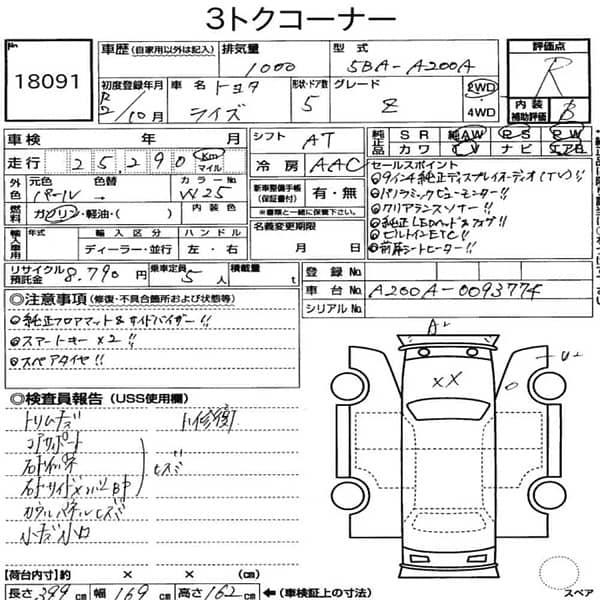 3トクコーナー
No
18091
車歴 (自家用以外は記入)
排気量
1000
型式
5BA-A200A
評価点
R
初度登録年月
R2/10月
車名
トヨタ
ライズ
形状・ドア数
5
グレード
Z
2WD
・
4WD
内装
補助評価
B
車検 年 月
シフト
AT
純正品
SR 純AW PS PW
カワ TV ナビ エアB
走行
25,290
Km
マイル
冷房
AAC
セールスポイント
◎9インチ純正ディスプレイオーディオ(TV)!!
◎パノラミックビューモニター!!
◎クリアランスソナー!!
◎純正LEDヘッド&フォグ!!
◎ビルトインETC!!
◎前席シートヒーター!!
外色
元色 色替
パール →
カラーNo
W25
新車整備手帳
(保証書付)
有・無
※書類と一緒に保管下さい。
燃料
ガソリン・軽油・( )
内装色
名義変更期限
月 日
輸入車用
年式
輸入区分
ディーラー・並行
ハンドル
左・右
リサイクル預託金
8,790円
乗車定員
5人
積載量
t
登録No
車台No
A200A-0093774
シリアルNo
◎注意事項 (修復・不具合箇所および状態等)
◎純正フロアマット&サイドバイザー!!
◎スマートキー×2!!
◎スペアタイヤ!!
◎検査員報告 (USS使用欄)
トリムキズ
コアサポート
カウルパネルヒズミ
小キズ小凹
ヒズミ
A2
XX
U2
【荷台内寸】約 × × (cm)
長さ 399cm 幅 169cm 高さ 162cm ←(車検証上の寸法)
スペア